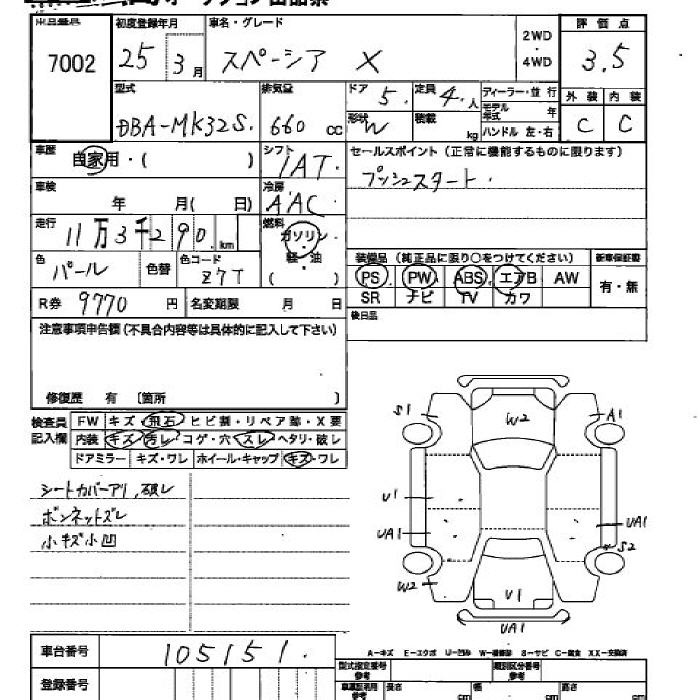 7002
初度登録年月
25年3月
車名・グレード
スペーシア X
2WD
・
4WD
評価点
3.5
型式
DBA-MK32S.
排気量
660 cc
ドア 5.
定員 4.人
ディーラー・並行
モデル年式 年
ハンドル 左・右
形状 W
積載 kg
外装 内装
C C
車歴
自家用・( )
シフト
IAT.
セールスポイント (正常に機能するものに限ります)
プッシュスタート.
車検
年 月( 日)
冷房
AAC
走行
11万3千290.km
燃料
ガソリン
・
軽・油
( )
色
パール
色替
色コード
Z7T
装備品 (純正品に限り○をつけてください)
新車保証書
PS PW ABS エアB AW
SR ナビ TV カワ
有・無
R券 9770 円
名変期限 月 日
後日品
注意事項申告欄(不具合内容等は具体的に記入して下さい)
修復歴 有 〔箇所 〕
検査員記入欄
FW キズ・飛石・ヒビ割・リペア跡・X要
内装 キズ・汚レ・コゲ・穴・スレ・ヘタリ・破レ
ドアミラー キズ・ワレ ホイール・キャップ キズ・ワレ
シートカバーアリ,破レ
ボンネットズレ
小キズ小凹
S1
W2
A1
U1
UA1
UA1
S2
W2
U1
UA1
車台番号
105151.
A-キズ E-エクボ U-凹み W-補修跡 S-サビ C-腐食 XX-交換済
型式指定番号
参考
類別区分番号
参考
登録番号
長さ cm
幅 cm
高さ cm